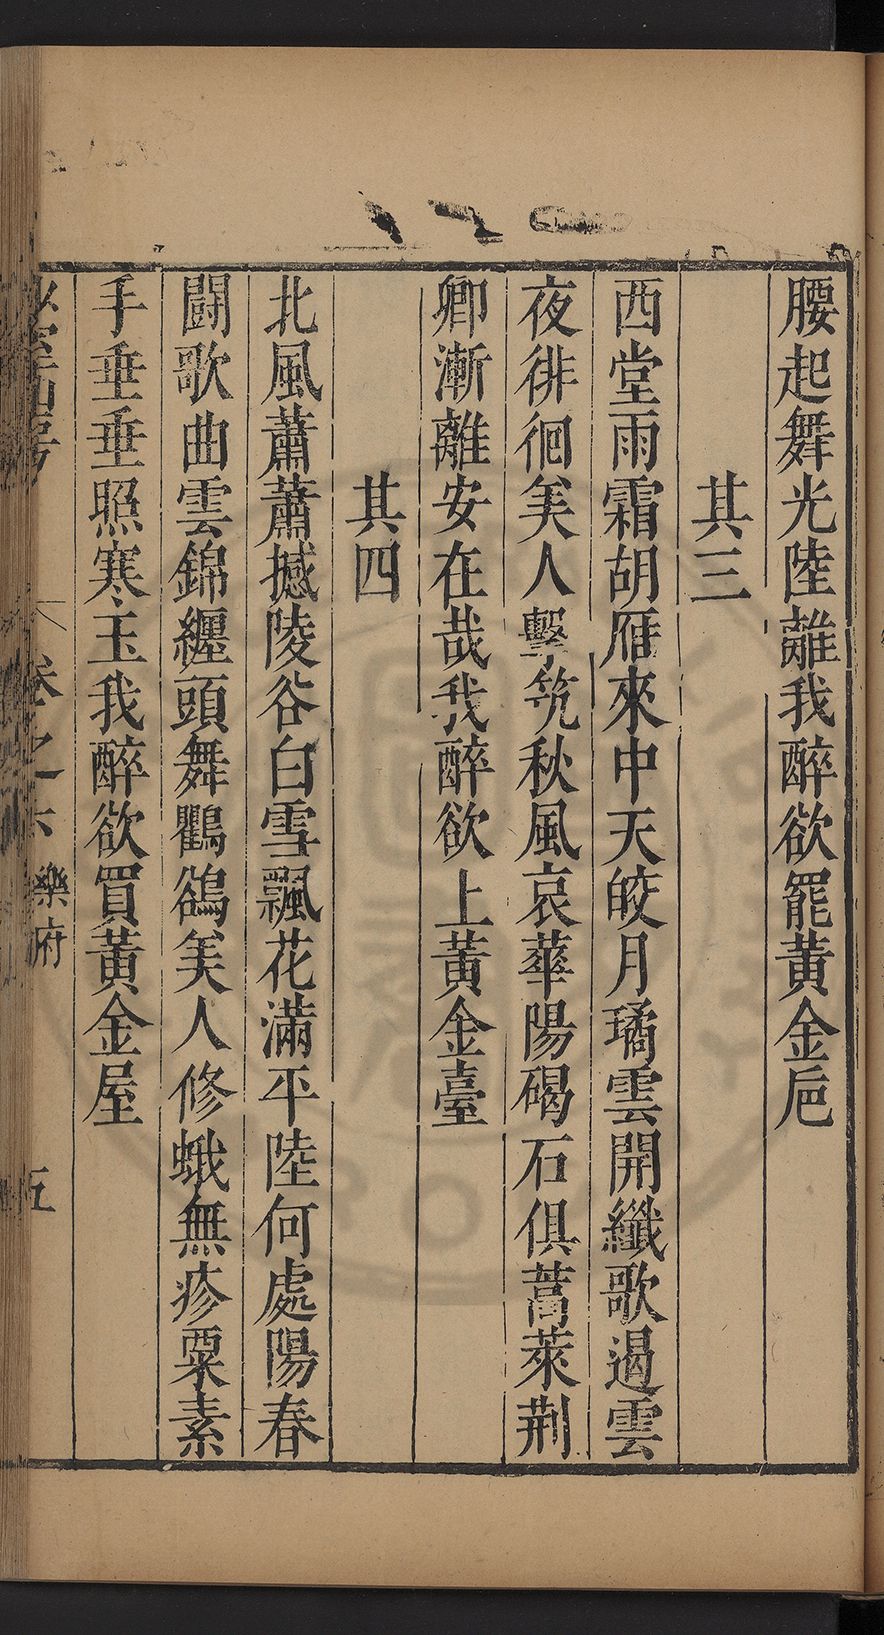 腰起舞光陸離我醉欲罷黄金巵
其三
西堂雨霜胡雁來中天皎月璚雲開纖歌遏雲
夜徘徊美人擊筑秋風哀華陽碣石俱蒿萊荆
卿漸離安在哉我醉欲上黄金臺
其四
北風蕭蕭撼陵谷白雪飄花滿平陸何處陽春
鬪歌曲雲錦纏頭舞鸜鵒美人修蛾無疹粟素
手垂垂照寒玉我醉欲買黄金屋
卷之六 樂府 五